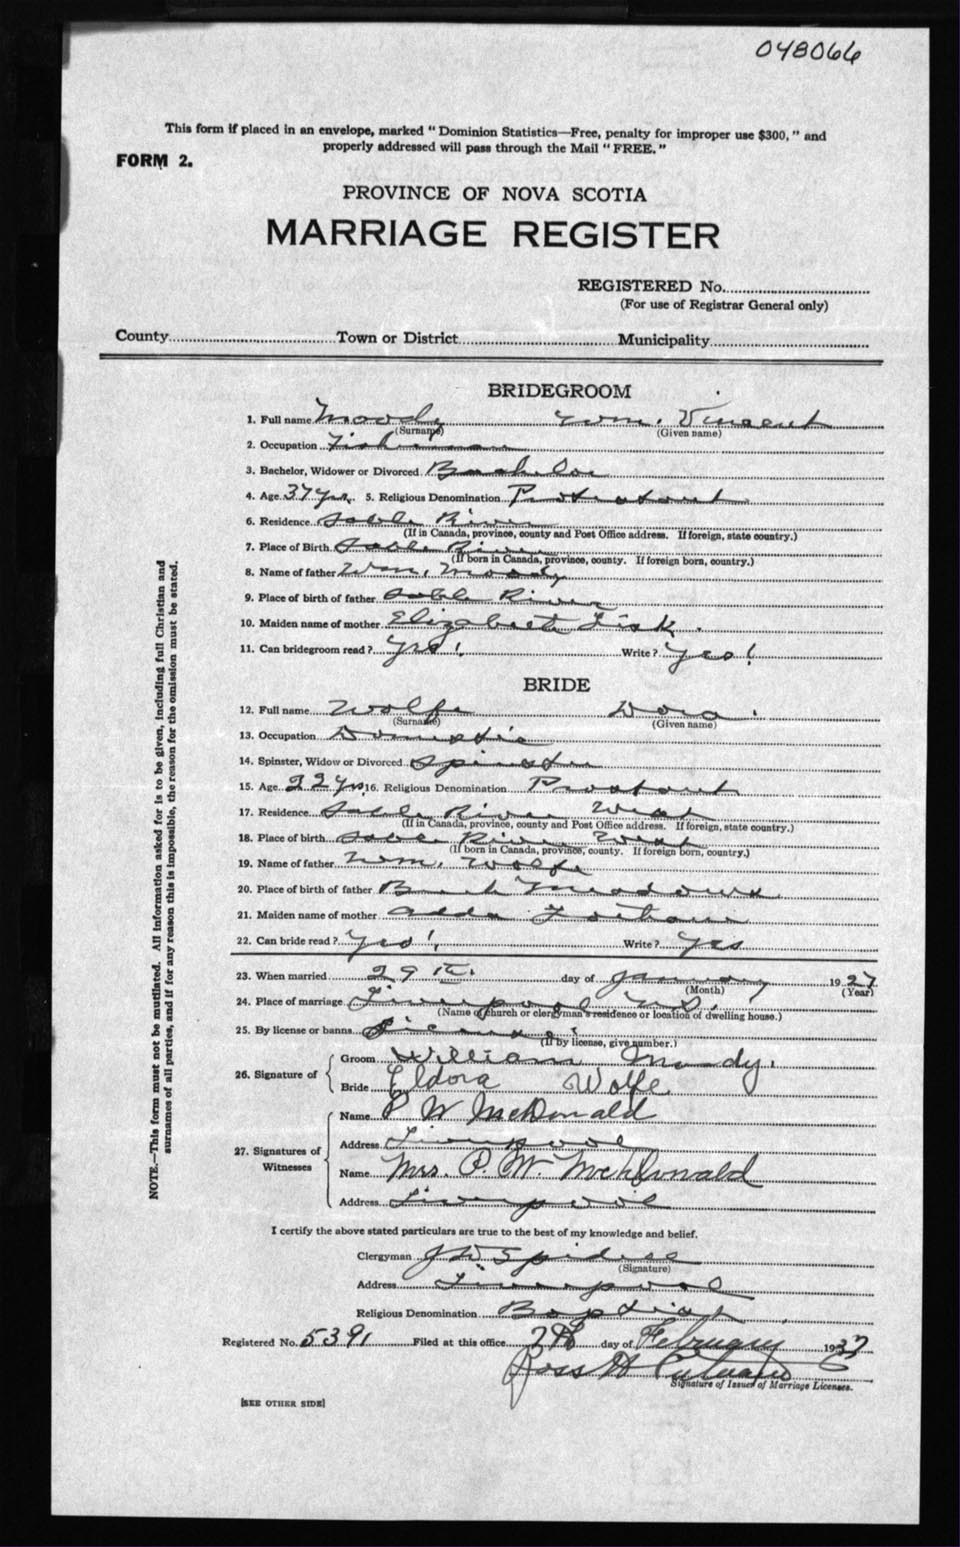 048066
This form if placed in an envelope, marked "Dominion Statistics—Free, penalty for improper use $300," and
properly addressed will pass through the Mail "FREE."
FORM 2.
PROVINCE OF NOVA SCOTIA
MARRIAGE REGISTER
REGISTERED No.
(For use of Registrar General only)
County Town or District Municipality
BRIDEGROOM
1. Full name Moody Wm. Vincent
(Surname) (Given name)
2. Occupation Fisherman
3. Bachelor, Widower or Divorced Bachelor
4. Age 37 yrs. 5. Religious Denomination Protestant
6. Residence Sable River
(If in Canada, province, county and Post Office address. If foreign, state country.)
7. Place of Birth Sable River
(If born in Canada, province, county. If foreign born, country.)
8. Name of father Wm. Moody
9. Place of birth of father Sable River
10. Maiden name of mother Elizabeth Lisk.
11. Can bridegroom read? Yes! Write? Yes!
BRIDE
12. Full name Wolfe Dora.
(Surname) (Given name)
13. Occupation Domestic
14. Spinster, Widow or Divorced Spinster
15. Age 22 yrs 16. Religious Denomination
17. Residence Sable River West
(If in Canada, province, county and Post Office address. If foreign, state country.)
18. Place of birth River West
(If born in Canada, province, county. If foreign born, country.)
19. Name of father Wm. Wolfe
20. Place of birth of father Meadows
21. Maiden name of mother
22. Can bride read? Yes! Write? Yes
23. When married 29th. day of January 1927
(Month) (Year)
24. Place of marriage Liverpool N.S.
(Name of church or clergyman's residence or location of dwelling house.)
25. By license or banns License
(If by license, give number.)
26. Signature of
Groom William Moody.
Bride Eldora Wolfe
27. Signatures of Witnesses
Name P W McDonald
Address Liverpool
Name Mrs. P. W. McDonald
Address Liverpool
I certify the above stated particulars are true to the best of my knowledge and belief.
Clergyman
(Signature)
Address Liverpool
Religious Denomination Baptist
Registered No. 5391 Filed at this office 7th day of February 1937
Ross H
Signature of Issuer of Marriage Licenses.
[SEE OTHER SIDE]
NOTE.—This form must not be mutilated. All information asked for is to be given, including full Christian and
surnames of all parties, and if for any reason this is impossible, the reason for the omission must be stated.